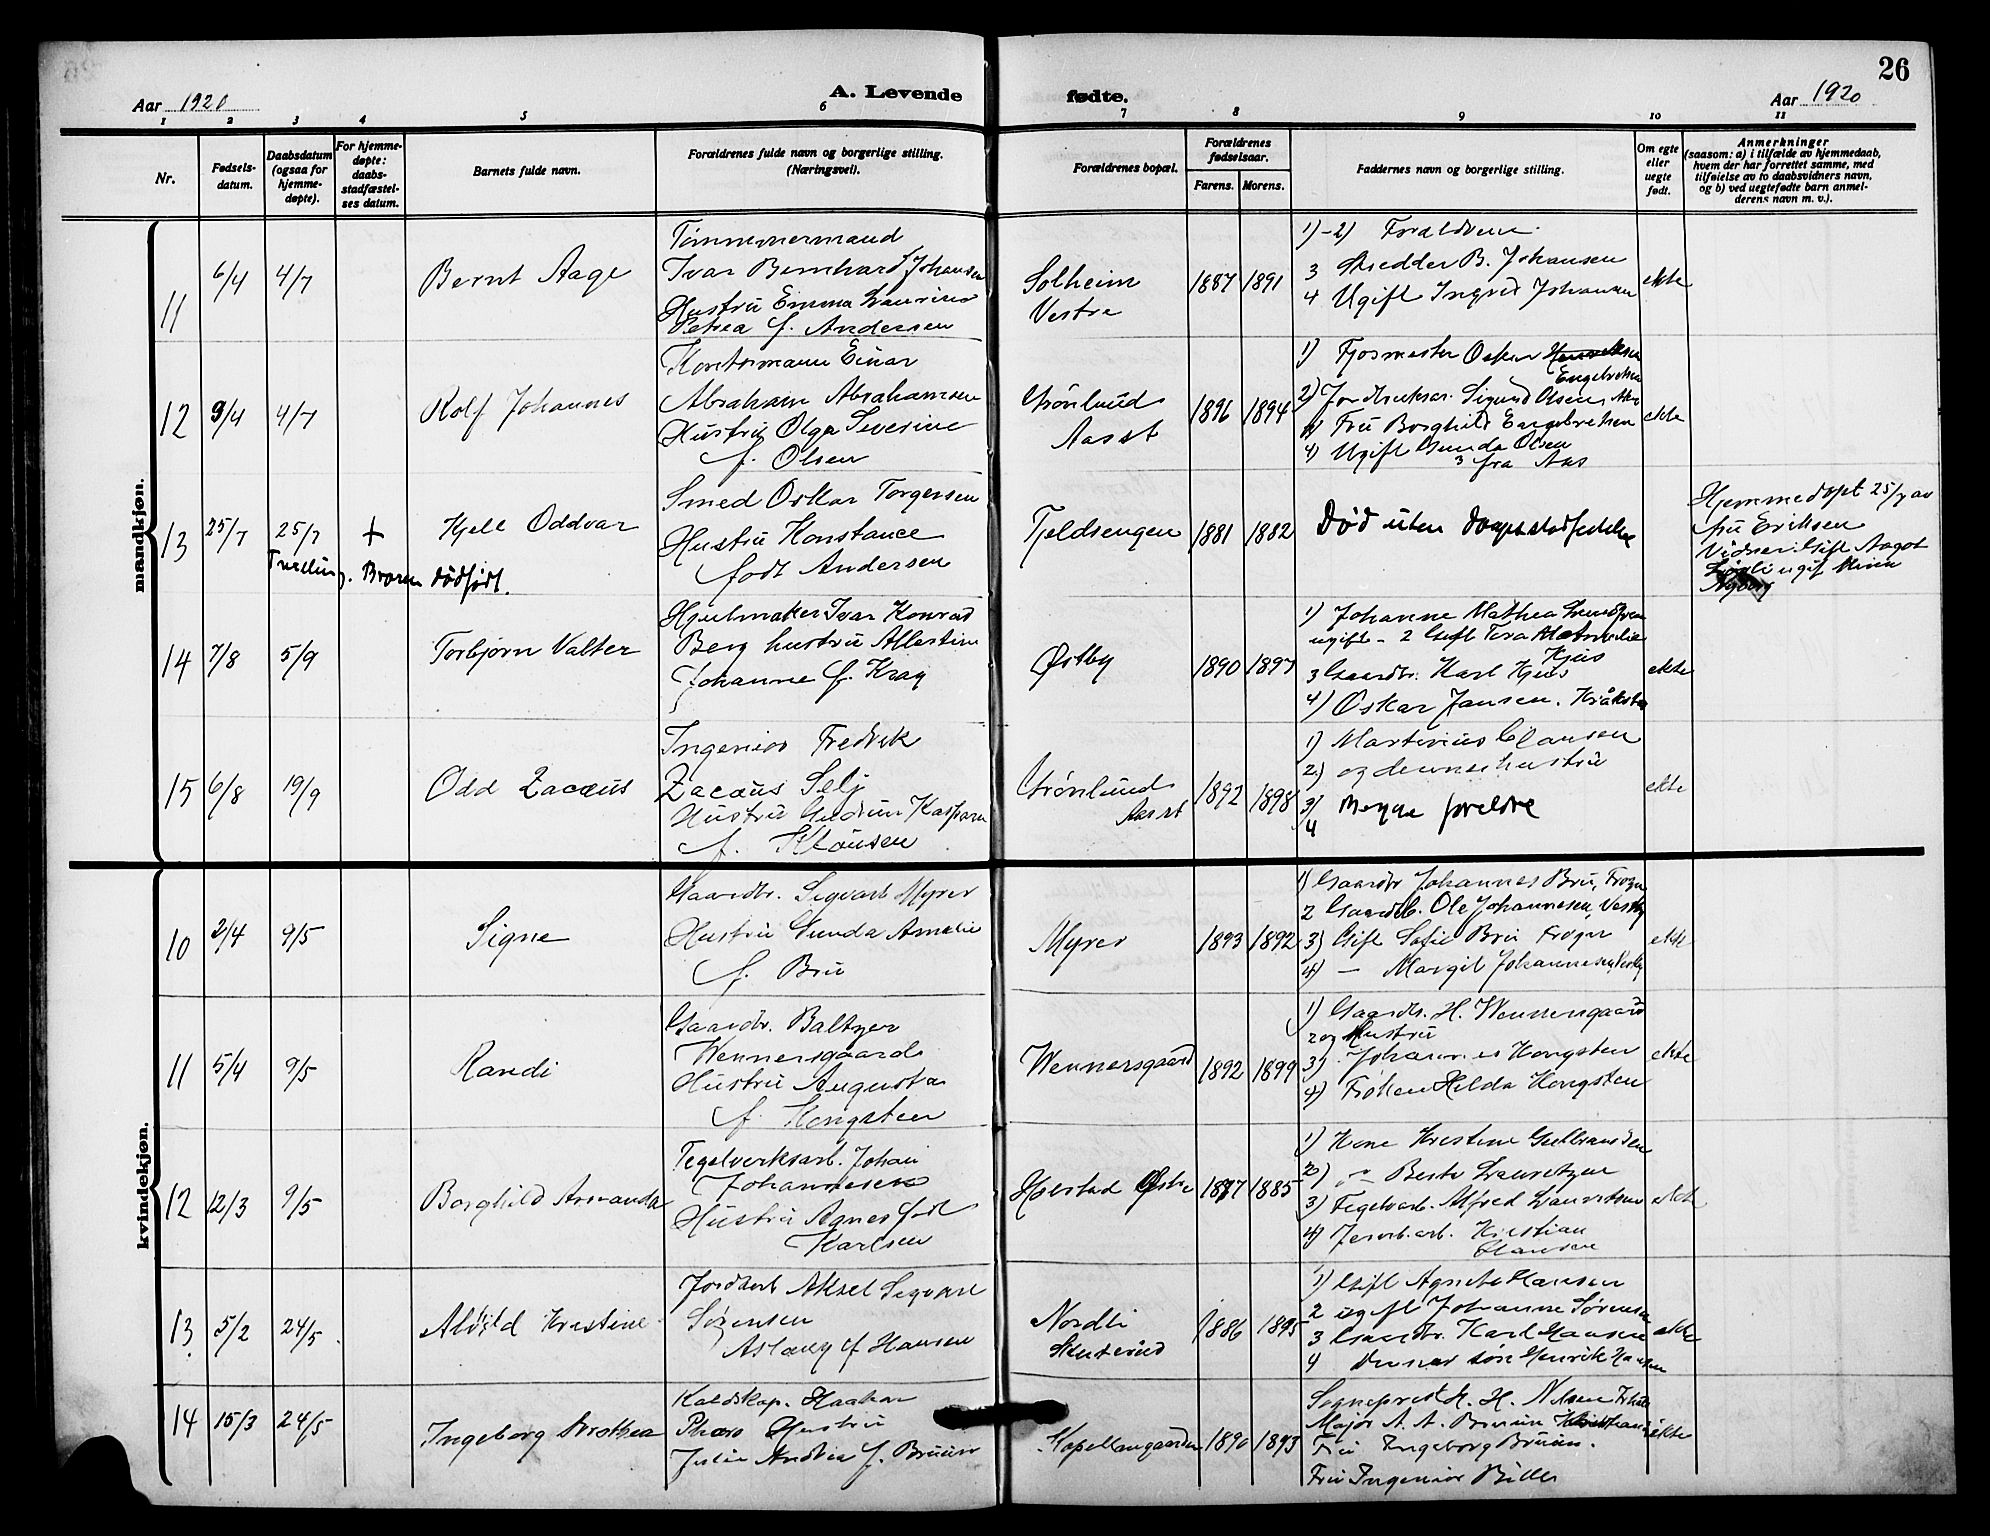 26
Aar 1920
A. Levende
fødte.
Aar 1920
1 2 3 4 5 6 7 8 9 10 11
Nr.
Fødsels-
datum.
Daabsdatum
(ogsaa for
hjemme-
døpte).
For hjemme-
døpte:
daabs-
stadfæstel-
ses datum.
Barnets fulde navn.
Forældrenes fulde navn og borgerlige stilling.
(Næringsvei).
Forældrenes bopæl.
Forældrenes
fødselsaar.
Farens. Morens.
Faddernes navn og borgerlige stilling.
Om egte
eller
uegte
født.
Anmerkninger
(saasom: a) i tilfælde av hjemmedaab,
hvem der har forrettet samme, med
tilføielse av to daabsvidners navn,
og b) ved uegtefødte barn anmel-
derens navn m. v.).
mandkjøn.
11 6/4 4/7 Bernt Aage
Tømmermand
Ivar Bernhard Johansen
Hustru Emma Laurine
Petrea f. Andersen
Solheim
Vestre
1887 1891
1)-2) Forældrene
3 Skrædder B. Johansen
4 Ugift Ingrid Johansen
ekte
12 9/4 4/7 Rolf Johannes
Kontormann Einar
Abraham Abrahamsen
Hustru Olga Severine
f. Olsen
Grønlund
Aas st
1896 1894
1) Fjøsmester Oskar Henriksen
Engebretsen
2) Jordbruksar. Sigurd Olsen, Aas
Fru Borghild Engebretsen
4) Ugift Gunda Olsen
fra Aas
ekte
13 25/7 25/7 + Kjell Oddvar
Tvilling. Broren dødfødt.
Smed Oskar Torgersen
Hustru Konstance
født Andersen
Fjeldsengen
1881 1882
Død uten daapsstadfestelse
Hjemmedøpt 25/7 av
fru Eriksen
Vidner: Gift Aagot
ugift
14 7/8 5/9 Torbjørn Valter
Hjulmaker Ivar Konrad
Berg hustru Albertine
Johanne f. Krag
Østby
1890 1897
1) Johanne Mathea
ugift - 2 Gift Tora
Kjus
3 Gaardbr. Karl Kjus
4) Oskar Jansen. Kråkstad
ekte
15 6/8 19/9 Odd Zacæus
Ingeniør Fredrik
Zacæus Selj
Hustru Gudrun Kaspara
f. Klausen
Grønlund
Aas st
1892 1898
1) Martinius Clausen
2) og dennes hustru
3) Begge foreldre
4
ekte
kvindekjøn.
10 2/4 9/5 Signe
Gaardbr. Sigvart Myrer
Hustru Gunda Amalie
f. Bru
Myrer
1893 1892
1) Gaardbr Johannes Bru, Frogn
2 Gaardb. Ole Johannesen, Vestby
3) Gift Sofie Bru Frogn
4) — Margit Johannesen, Vestby
ekte
11 5/4 9/5 Randi
Gaardbr. Baltzer
Wennersgaard
Hustru Augusta
f. Kongsten
Wennersgaard
1892 1899
1) Gaardbr. H. Wennersgaard
2 og Hustru
3) Johannes Kongsten
4) Frøken Helda Kongsten
ekte
12 12/3 9/5 Borghild Armanda
Tegelverksarb. Johan
Johannesen
Hustru Agnes født
Karlsen
Holstad Østre
1887 1885
1) Kone Kristine Gulbrandsen
2) Berte Lauretzen
3) Tegelvarb. Alfred Lauritsen
4) Jernb.arb. Kristian
Hansen
ekte
13 5/2 24/5 Alvild Kristine
Jordarb Aksel Sigvart
Sørensen
Aslaug f Hansen
Nordli
Skuterud
1886 1895
1) Gift Agnete Hansen
2 ugift Johanne Sørensen
3 Gaardbr. Karl Hansen
4 Dennes søn Henrik Hansen
ekte
14 15/3 24/5 Ingeborg Dorothea
Kaldskap. Haakon
Pharo Hustru
Julie Andrea f. Bruun
Kapellangaarden
1890 1893
Sogneprest H. H. Nilsen
Major A. A. Bruun
Fru Ingeborg Bruun.
Fru Ingeniør Bille
ekte